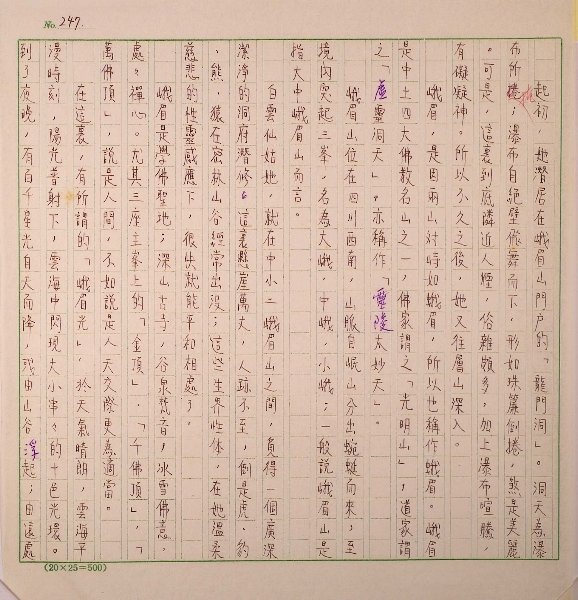 No. 247.
起初，她潛居在峨眉山門戶的「龍門洞」。洞天為瀑
布所掩；瀑布自絕壁飛舞而下，形如珠簾倒捲，煞是美麗
。可是，這裏到底隣近人煙，俗雜頗多，加上瀑布喧騰，
有礙凝神。所以不久之後，她又往層山深入。
峨眉，是因兩山對峙如蛾眉，所以也稱作蛾眉。峨眉
是中土四大佛教名山之一，佛家謂之「光明山」，道家謂
之「虛靈洞天」，亦稱作「靈陵太妙天」。
峨眉山位在四川西南，山脈自岷山分出蜿蜒而來，至
境內突起三峯，名為大峨，中峨，小峨；一般說峨眉山是
指大中峨眉山而言。
白雲仙姑她，就在中小二峨眉山之間，覓得一個廣深
潔淨的洞府潛修。這裏懸崖萬丈，人跡不至，倒是虎、豹
、熊、猿在密林山谷經常出沒；這些生界性体，在她溫柔
慈悲的性靈感應下，很快就能平和相處了。
峨眉是學佛聖地；深山古寺，谷泉梵音，冰雪佛意，
處々禪心。尤其三座主峯上的「金頂」、「千佛頂」、「
萬佛頂」，說是人間，不如說是人天交際更為適當。
在這裏，有所謂的「峨眉光」，於天氣晴朗，雲海平
漫時刻，陽光普射下，雲海中閃現大小串々的七色光環。
到了夜晚，有白千星光自天而降，或由山谷浮起；由遠處
(20×25=500)